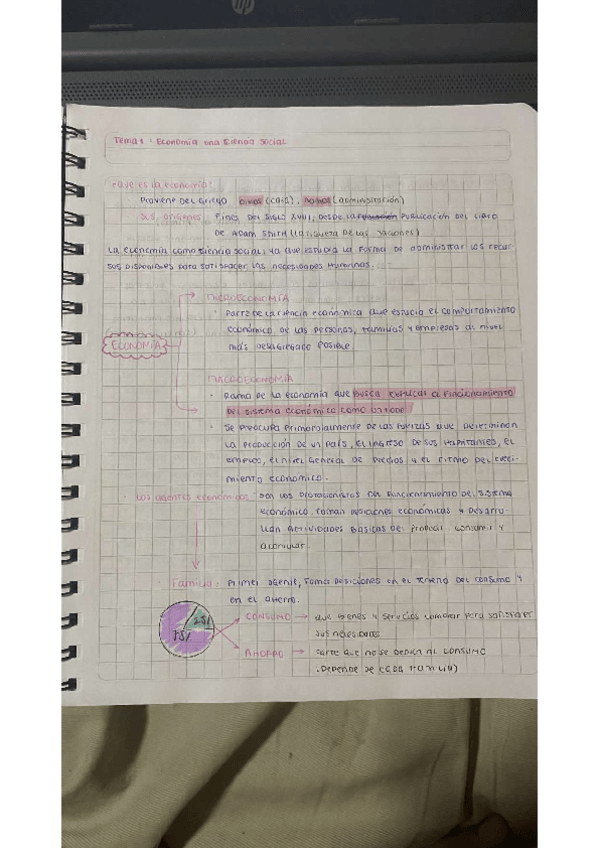 hp
Tema 1 : Economía una Ciencia Social
¿Que es la economía?
Proviene del griego oikos (casa), nomos (administración)
Sus orígenes fines del siglo XVIII, desde la publicación del libro
de Adam Smith (La riqueza de las naciones)
La economía como ciencia social: ya que estudia la forma de administrar los recur
sos disponibles para satisfacer las necesidades humanas.
MICROECONOMÍA
· Parte de la ciencia económica que estudia el comportamiento
económico de las personas, familias y empresas al nivel
más desagregado posible.
ECONOMÍA
MACROECONOMÍA
· Rama de la economía que busca explicar el funcionamiento
del sistema económico como un todo
· Se preocupa primordialmente de las fuerzas que determinan
la producción de un país, el ingreso de sus habitantes, el
empleo, el nivel general de precios y el ritmo del creci-
miento económico.
· Los agentes económicos: son los protagonistas del funcionamiento del sistema
económico, toman decisiones económicas y desarro-
llan actividades básicas de: producir, consumir y
acumular.
· Familia: Primer agente, toma decisiones en el terreno del consumo y
en el ahorro.
25%
75%
CONSUMO → que bienes y servicios comprar para satisfacer
sus necesidades
AHORRO → Parte que no se dedica al consumo
. Depende de (cada familia)